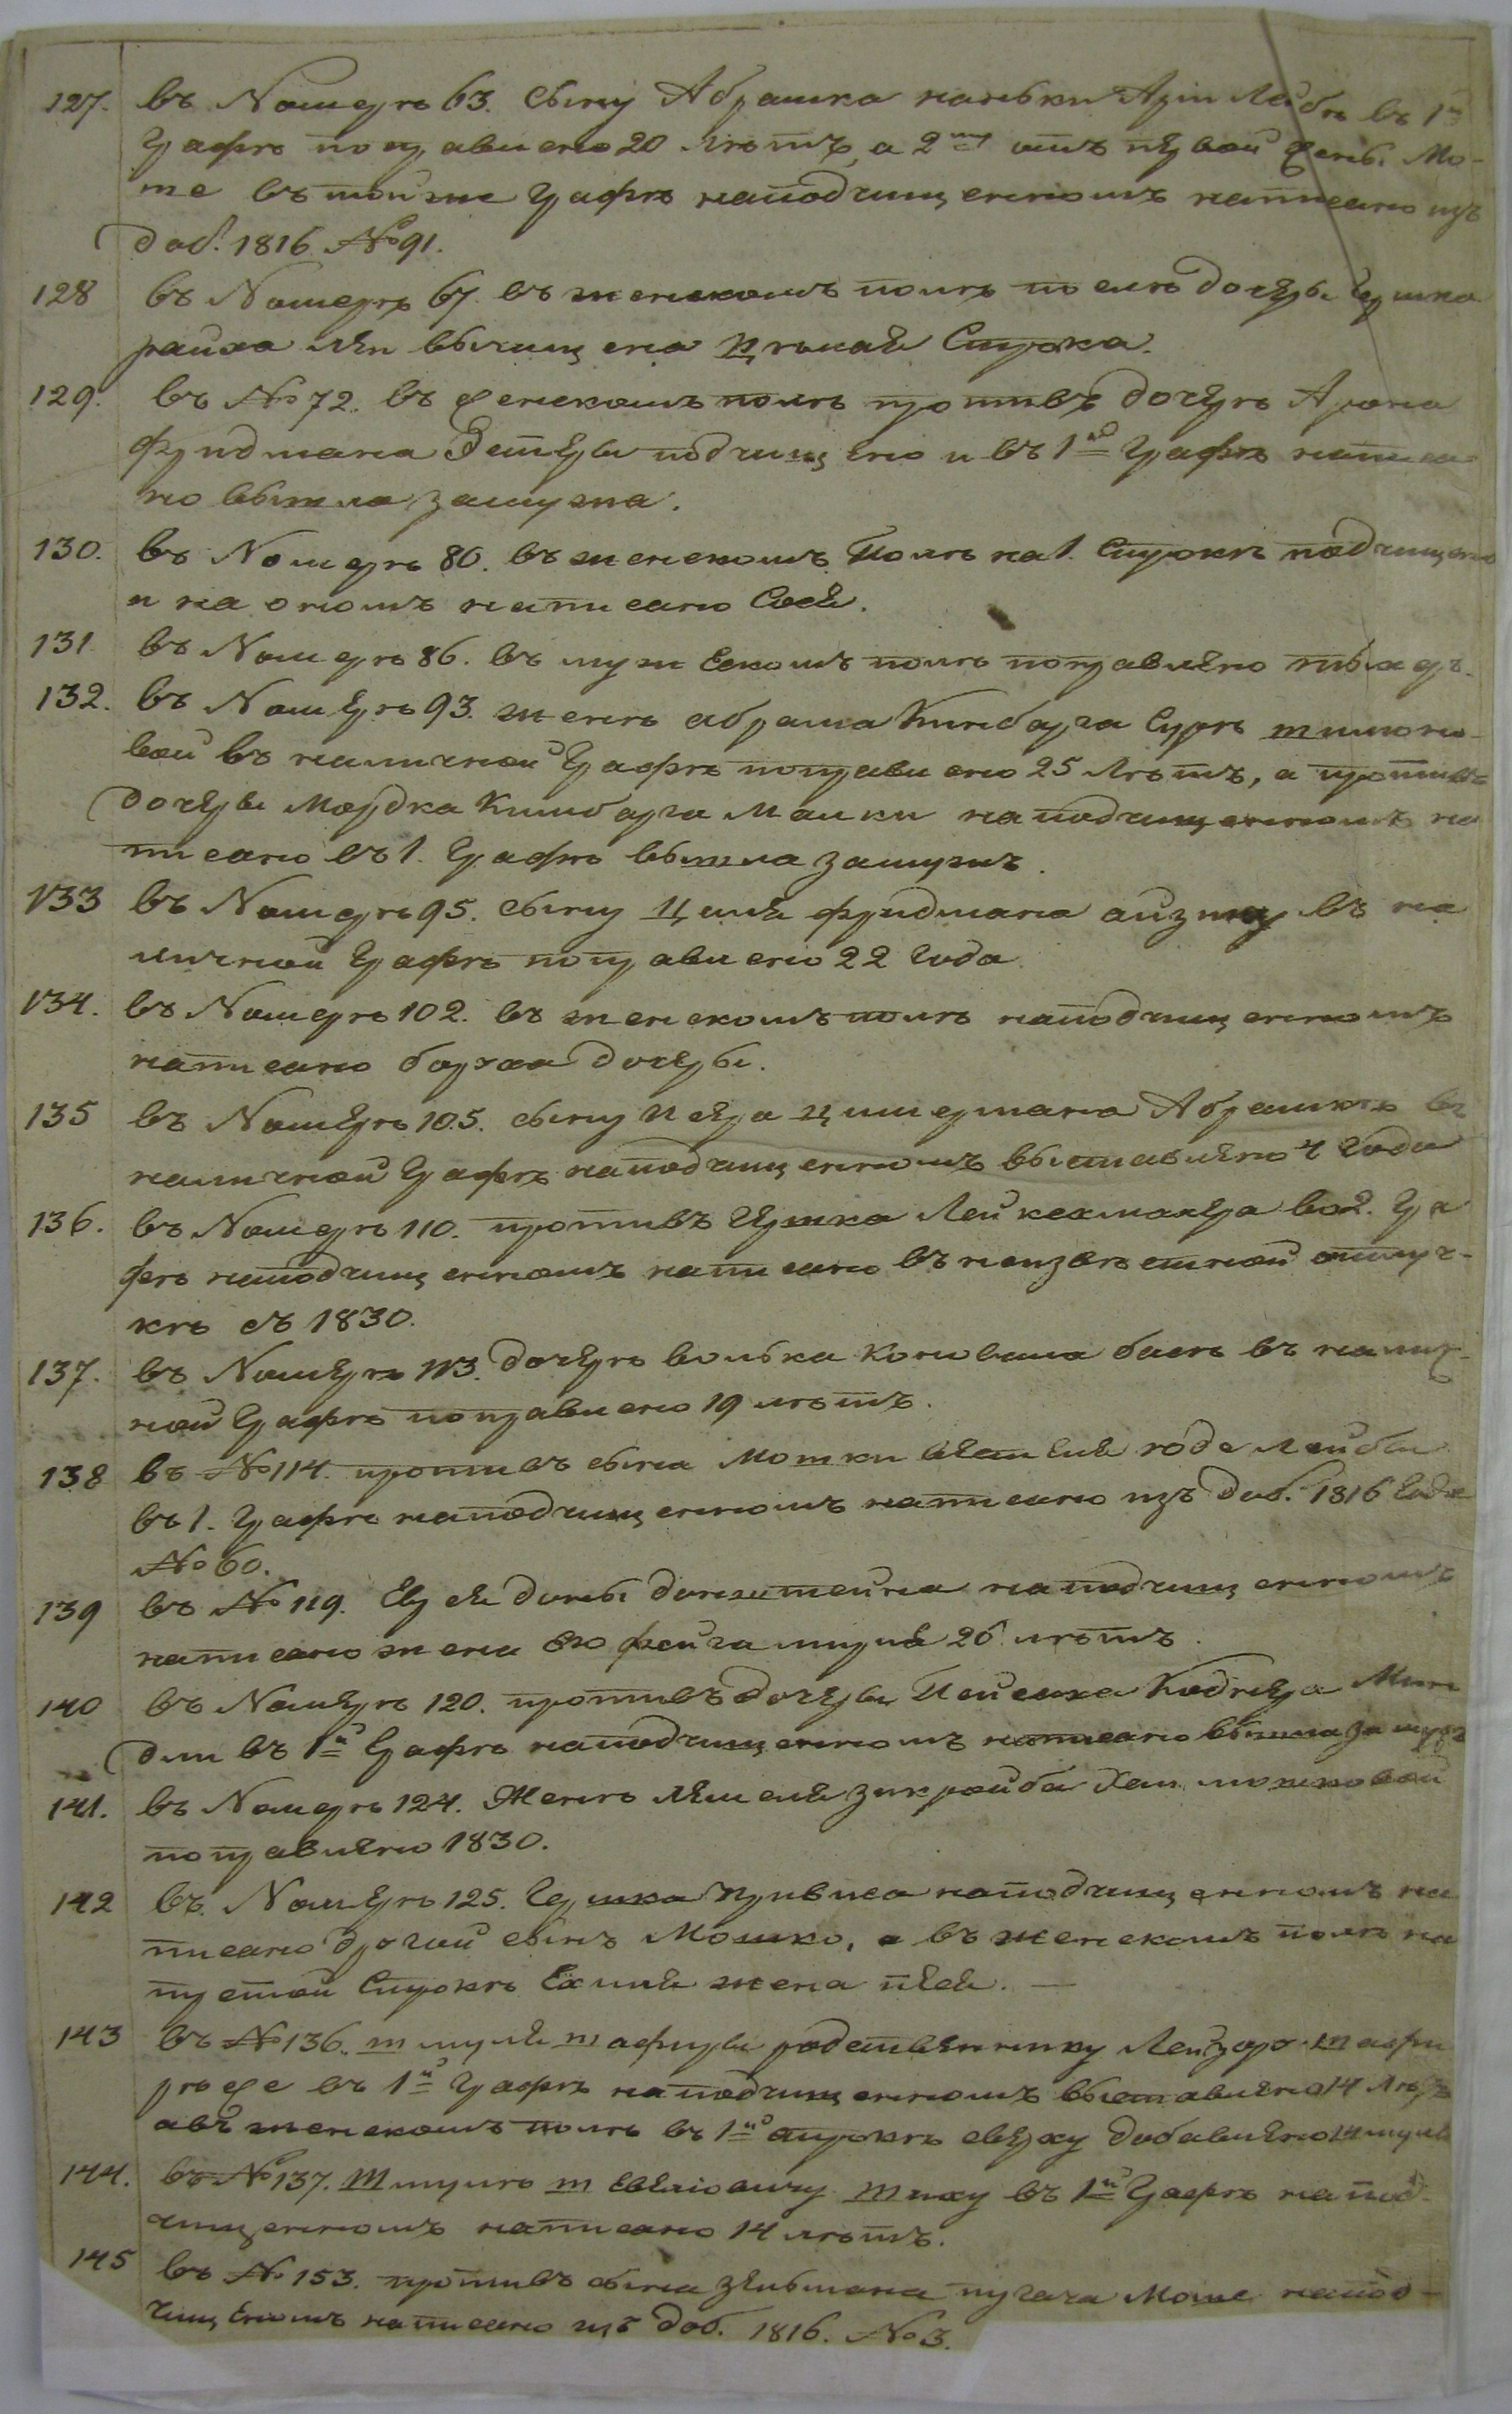 127. въ Номерѣ 63. сыну Абрашка наньки Арiи Лейбѣ въ 1й
графѣ поправлено 20 лѣтъ, а 2му отъ первой жены Мо-
те въ той же графѣ наподчищенномъ написано изъ
доб. 1816 №91.
128 въ Номерѣ 67. въ женскомъ полѣ по елѣ дочеры Гершка
райха лѣи вычищена цѣлая Строка.
129. въ №72. въ женскомъ полѣ противъ дочерѣ Арона
Фридмана Эстеры подчищено и въ 1й графѣ написа
но вышла замужа.
130. въ Номерѣ 80. въ женскомъ Полѣ на 1. Строкѣ подчищено
и на ономъ написано Сося.
131 въ Номерѣ 86. въ мужескомъ полѣ поправлено
132. въ Номерѣ 93. женѣ абрама Кинбарга Сурѣ шимоно-
вой въ наличной графѣ поправлено 25 Лѣтъ, а противъ
дочеры Мордка Кимбарга Малки наподчищенномъ на
писано въ 1. графѣ вышла замужъ.
133 въ Номерѣ 95. сыну Цаля фридмана айзику въ на
личной графѣ поправлено 22 года
134. въ Номерѣ 102. въ женскомъ полѣ наподчищенномъ
написано баркха дочеры.
135 въ Номерѣ 105. сыну Исера цимермана Абрашкѣ въ
наличной графѣ наподчищенномъ выставлено 4 года
136. въ Номерѣ 110. противъ Гершка Лейкехмахера во 2. гра
фѣ наподчищенномъ написано въ неизвѣстной отлуч-
кѣ съ 1830.
137. въ Номерѣ 113. дочерѣ волька Коновала басѣ въ налич-
ной графѣ поправлено 19 лѣтъ.
138 въ №114. противъ сына Мошки роде лейбы
въ 1. графѣ наподчищенномъ написано изъ доб. 1816 года
№60.
139 въ №119. наподчищенномъ
написано жена его фейга мируля 26 лѣтъ.
140 въ Номерѣ 120. противъ дочеры Пейсаха Коднера Мин
дли въ 1й графѣ наподчищенномъ написано вышла замужъ
141. въ Номерѣ 124. Женѣ мошковой
поправлено 1830.
142 въ Номерѣ 125. Гершка наподчищенномъ на
писано другой сынъ Мошко, а въ женскомъ полѣ на
пустой Строкѣ Ехиля жена песя. —
143 въ №136. шмуля шафиры родственнику Лейзеру шафи
рѣ же въ 1й графѣ наподчищенномъ выставлено 14 лѣтъ
авъ женскомъ полѣ въ 1й строкѣ сверху добавлено
144. въ №137. Шмулѣ въ 1й графѣ напод-
чищенномъ написано 14 лѣтъ.
145 въ №153. противъ сына зельмана пугача Моше напод-
чищеномъ написано изъ доб. 1816. №3.